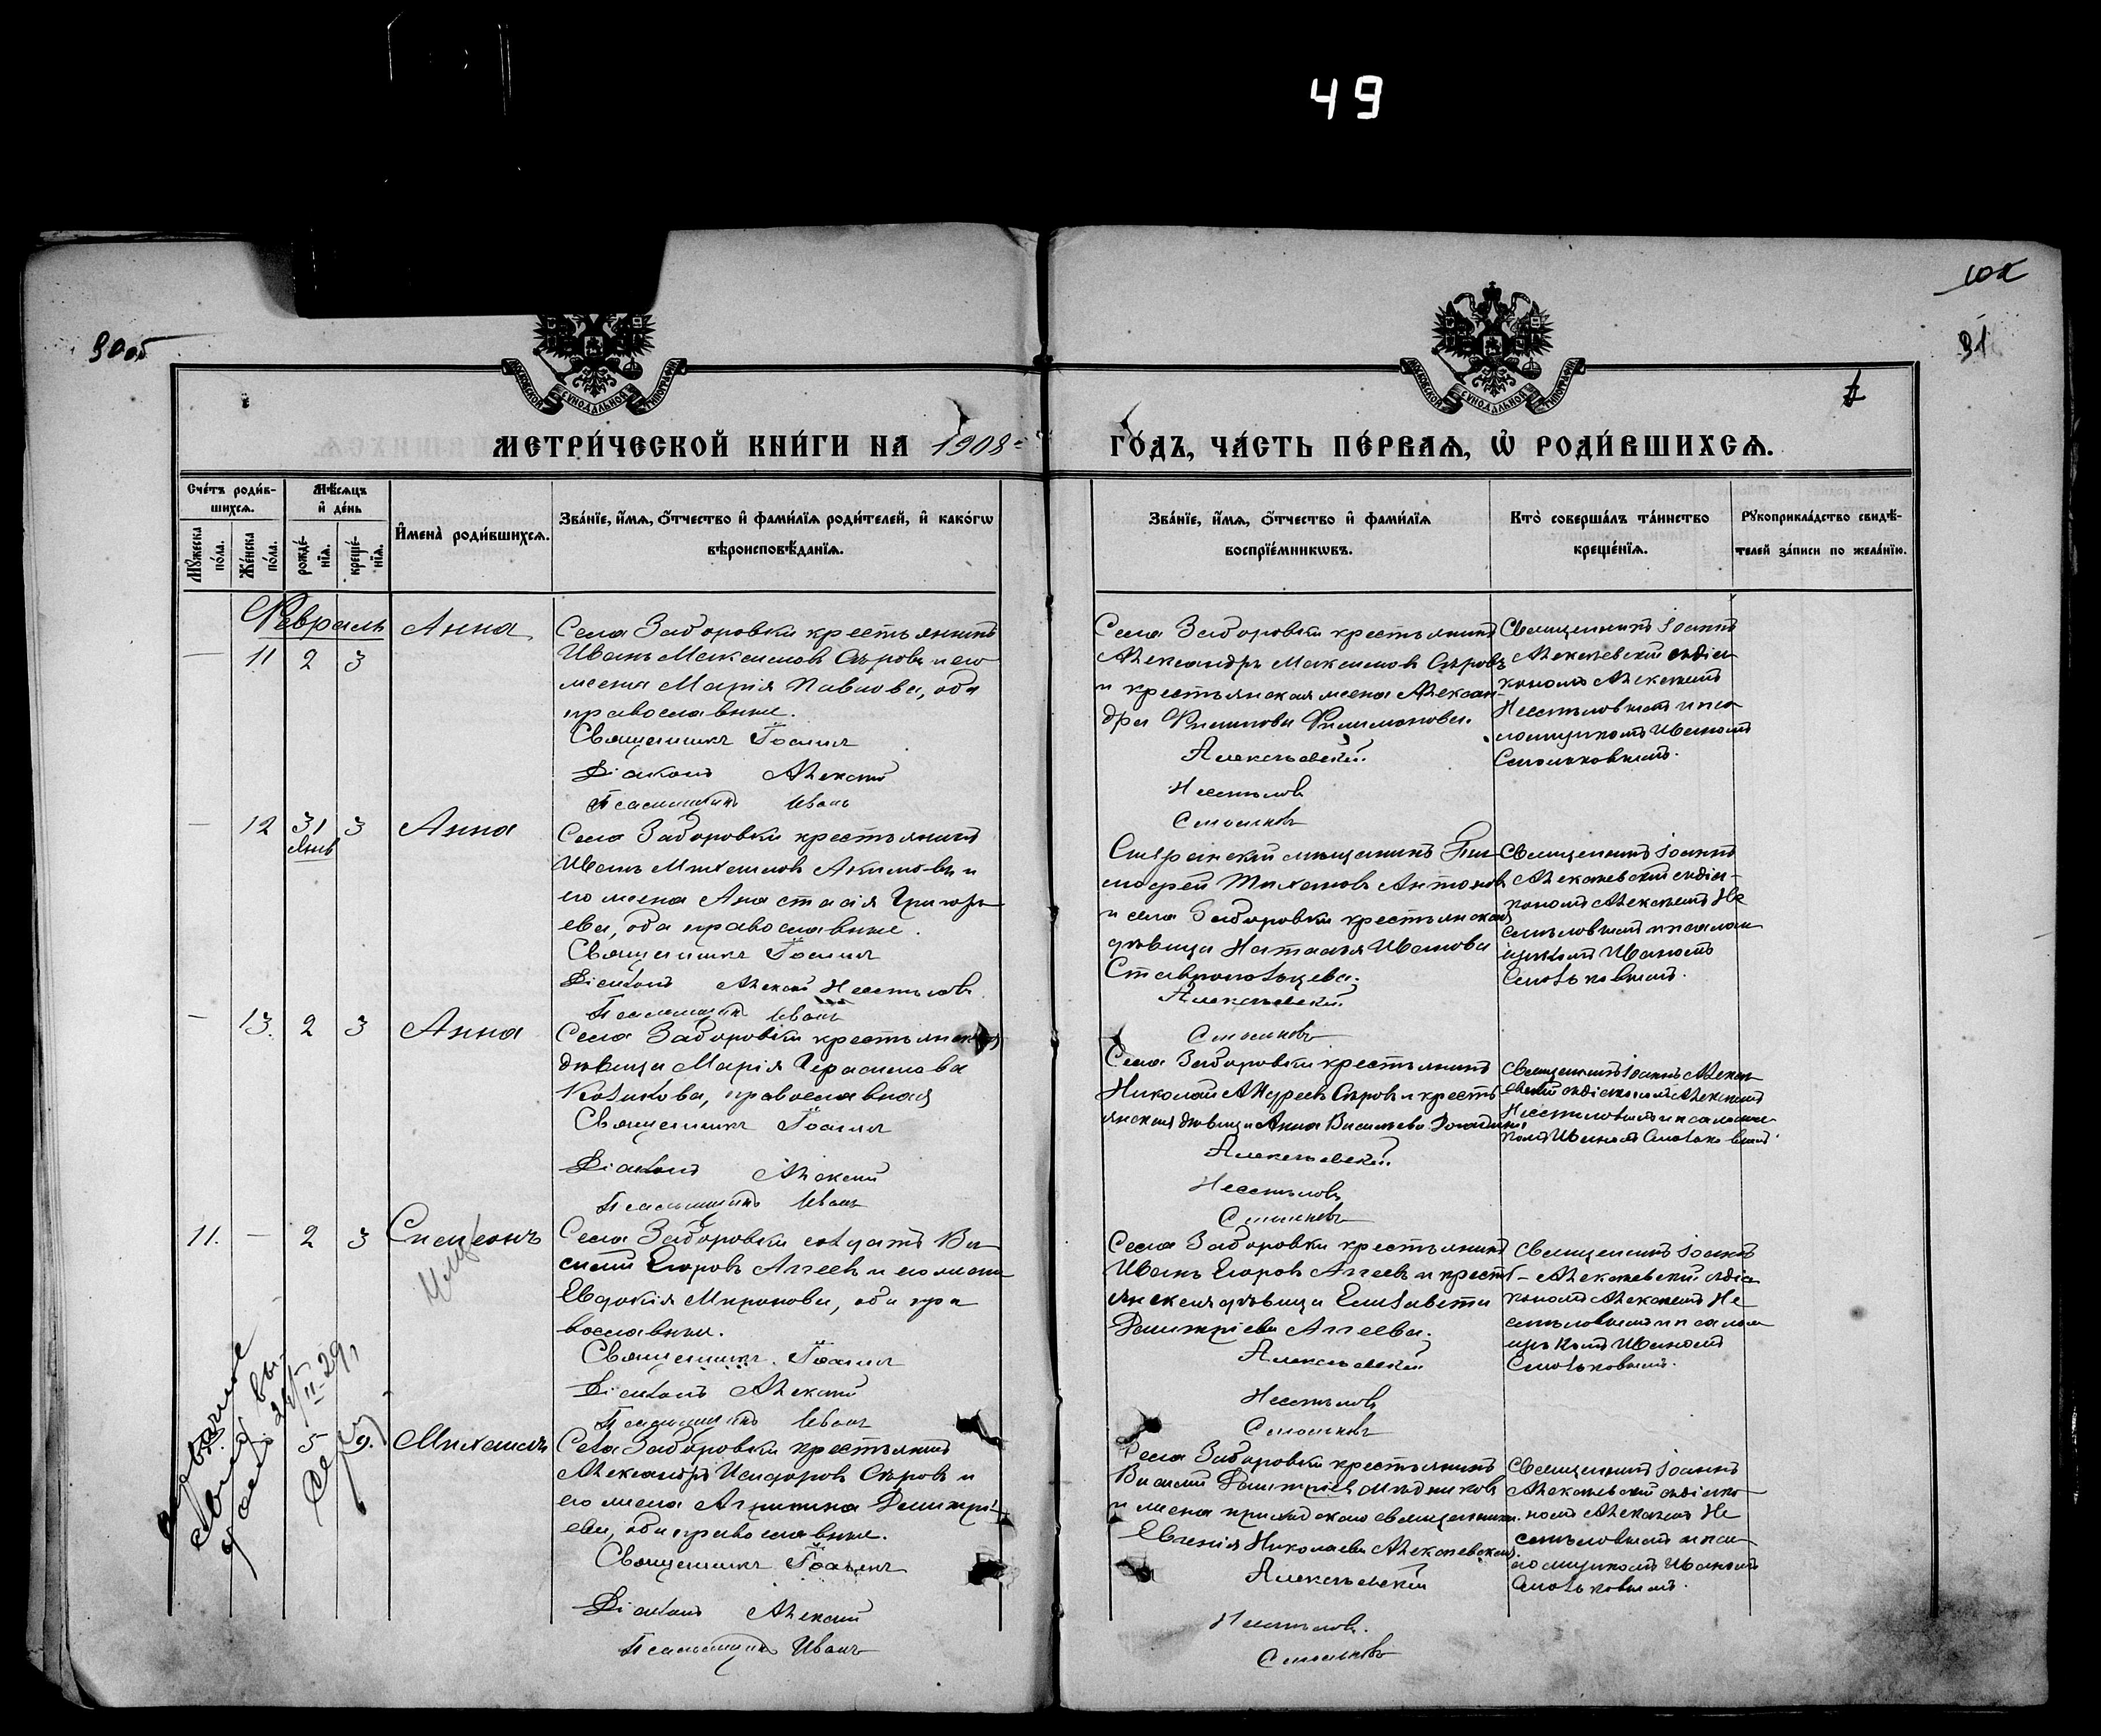 49
30 об
31
МОСКОВСКОЙ СУНОДАЛЬНОЙ ТИПОГРАФІИ
МОСКОВСКОЙ СУНОДАЛЬНОЙ ТИПОГРАФІИ
МЕТРИ́ЧЕСКОЙ КНИ́ГИ НА 1908
ГО́ДЪ, ЧА́СТЬ ПЕ́РВАѦ, Ѽ РОДИ́ВШИХСѦ.
Сче́тъ роди́в-
шихсѧ.
Мѣ́сѧцъ
и҆ де́нь
Мꙋ́жеска
по́ла.
Же́нска
по́ла.
рожде́-
нїѧ.
креще́-
нїѧ.
И҆мена̀ роди́вшихсѧ.
Зва́нїе, и҆́мѧ, ѻ҆́тчество и҆ фами́лїѧ роди́телей, и҆ како́гѡ
вѣроисповѣ́данїѧ.
Зва́нїе, и҆́мѧ, ѻ҆́тчество и҆ фами́лїѧ
воспрїе́мникѡвъ.
Кто̀ соверша́лъ та́инство
креще́нїѧ.
Рꙋкоприкла́дство свидѣ́-
телей за́писи по жела́нїю.
Февраль
— 11 2 3 Анна
Села Заборовки крестьянинъ
Иванъ Максимовъ Сѣровъ и его
жена Марія Павлова, оба
православные.
Священникъ Іоаннъ
Діаконъ Алексій
Псаломщикъ Иванъ
Села Заборовки крестьянинъ
Александръ Максимовъ Сѣровъ
и крестьянская жена Алексан-
дра Филимонова.
Алексѣевскій
Несмѣловъ
Смольковъ
Священникъ Іоаннъ
Алексѣевскій съ діа-
кономъ Алексѣемъ
Несмѣловымъ и пса-
ломщикомъ Иваномъ
Смольковымъ.
— 12 31 3 Анна
Янв
Села Заборовки крестьянинъ
Иванъ Михаиловъ Акимовъ и
его жена Анастасія Григорь-
ева, оба православные.
Священникъ Іоаннъ
Діаконъ Алексій Несмѣловъ
Псаломщикъ Иванъ
Сызранскій мѣщанинъ Ти-
моѳей Тихоновъ Антоновъ
и села Заборовки крестьянская
дѣвица Наталья Иванова
Ставропольцева.
Алексѣевскій
Смольковъ
Священникъ Іоаннъ
Алексѣевскій съ діа-
кономъ Алексѣемъ Не
смѣловымъ и псалом
щикомъ Иваномъ
Смольковымъ.
— 13. 2 3 Анна
Села Заборовки крестьянская
дѣвица Марія Герасимова
Козикова, православная
Священникъ Іоаннъ
Діаконъ Алексій
Псаломщикъ Иванъ
Села Заборовки крестьянинъ
Николай Андреевъ Сѣровъ и кресть-
янская дѣвица Анна Васильева
Алексѣевскій
Несмѣловъ
Смольковъ
Священникъ Іоаннъ Алексѣ-
евскій съ діакономъ Алексѣемъ
Несмѣловымъ и псаломщи-
комъ Иваномъ Смольковымъ.
11. — 2 3 Симеонъ
Села Заборовки солдатъ Ва-
силій Егоровъ Агеевъ и его жена
Евдокія Миронова, оба пра
вославные.
Священникъ Іоаннъ
Діаконъ Алексій
Псаломщикъ Иванъ
Села Заборовки крестьянинъ
Иванъ Егоровъ Агеевъ и кресть-
янская дѣвица Елизавета
Димитріева Агеева.
Алексѣевскій
Несмѣловъ
Смольковъ
Священникъ Іоаннъ
Алексѣевскій съ діа
кономъ Алексѣемъ Не
смѣловымъ и псалом
щикомъ Иваномъ
Смольковымъ.
5 Михаилъ
Села Заборовки крестьянинъ
Александръ Исидоровъ Сѣровъ и
его жена Агрипина Димитрі-
ева, оба православные.
Священникъ Іоаннъ
Діаконъ Алексій
Псаломщикъ Иванъ
Села Заборовки крестьянинъ
Василій Димитріевъ Мѣдниковъ
и жена приходскаго священника
Евгенія Николаева Алексѣевская.
Алексѣевскій
Несмѣловъ.
Смольковъ
Священникъ Іоаннъ
Алексѣевскій съ діако-
номъ Алексѣемъ Не
смѣловымъ и пса-
ломщикомъ Иваномъ
Смольковымъ.